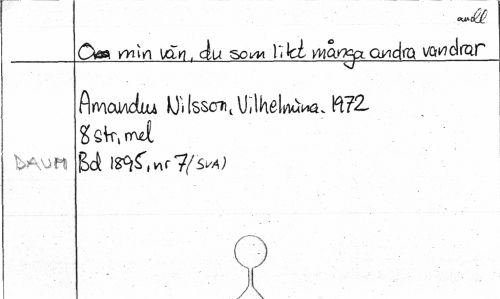 andl
O min vän, du som likt många andra vandrar
Amandus Nilsson, Vilhelmina. 1972
8 str, mel
DAUM Bd 1895, nr 7 (SVA)